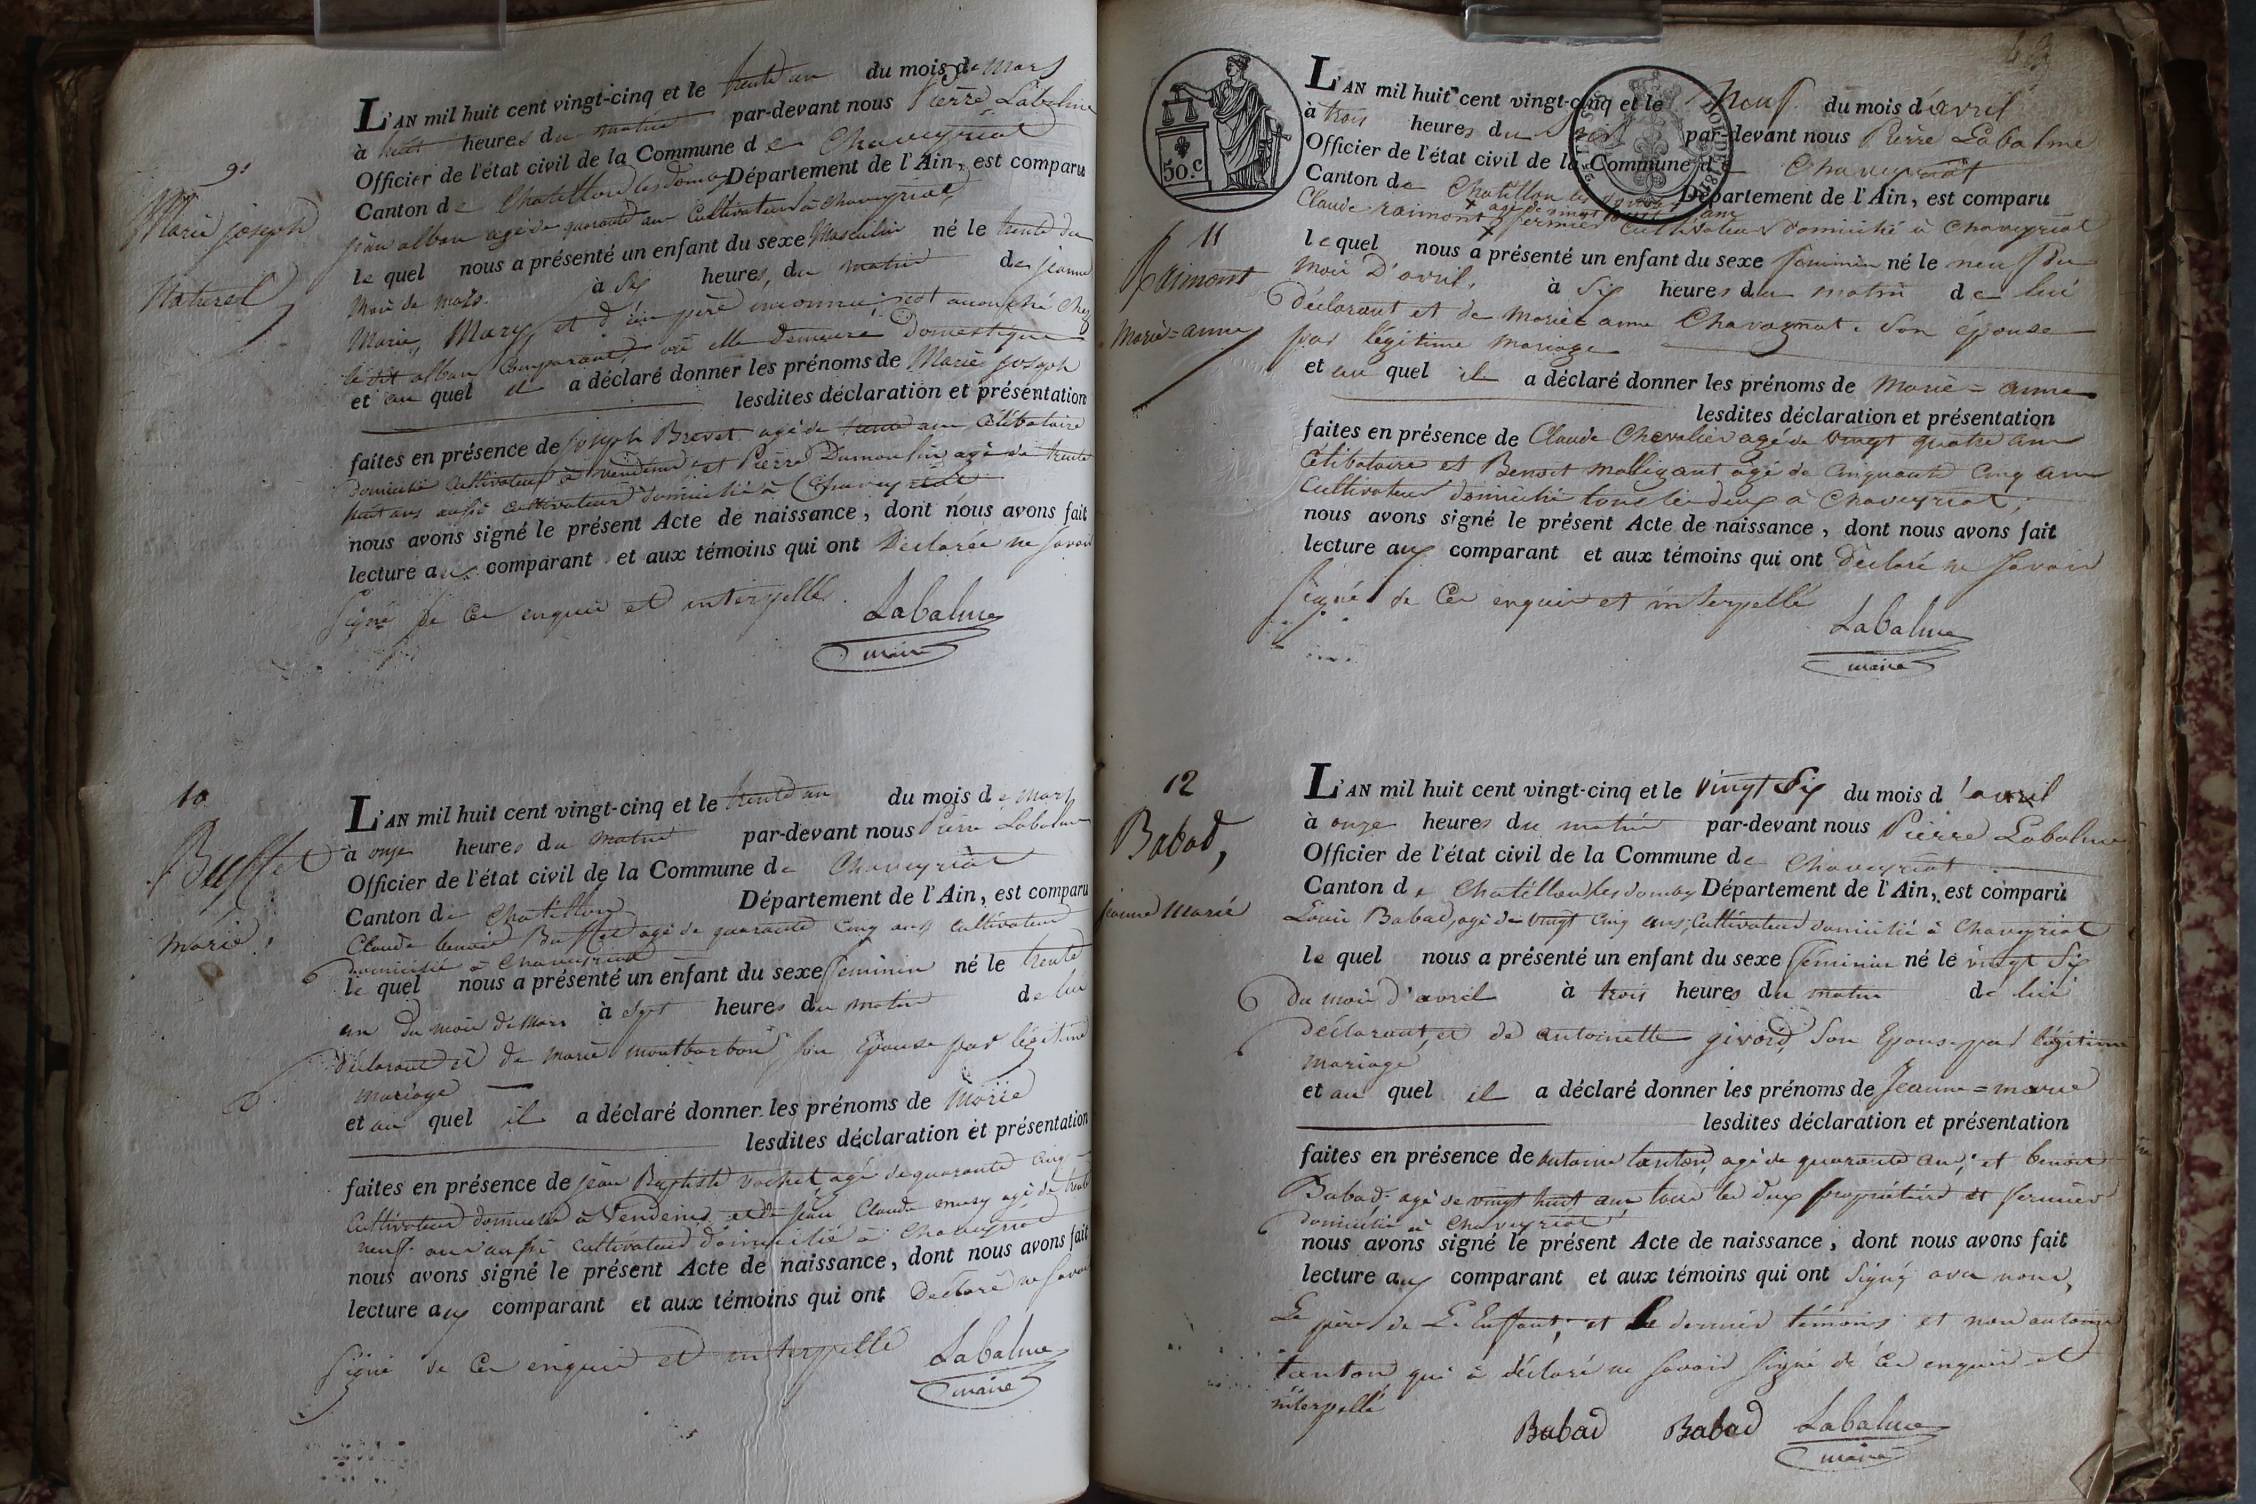 9.
Marie joseph
Naturel
L'AN mil huit cent vingt-cinq et le trente un du mois de Mars
à huit heures du matin par-devant nous Pierre Labalme
Officier de l'état civil de la Commune de Chaveyriat
Canton de Chatillon les dombes Département de l'Ain, est comparu
jean alban agé de quarante ans Cultivateur à Chaveyriat
le quel nous a présenté un enfant du sexe Masculin né le trente du
Mois de mars. à Six heures, du matin de jeanne
Marie, Mary, et d'un père inconnu; est accouchée chez
le dit alban comparant, où elle demeure Domestique
et au quel il a déclaré donner les prénoms de Marie joseph
lesdites déclaration et présentation
faites en présence de joseph Brevet agé de trente ans Célibataire
domicilié cultivateur à Vendeins et Pierre Dumoulin agé de trente
huit ans aussi cultivateur domicilié à Chaveyriat
nous avons signé le présent Acte de naissance, dont nous avons fait
lecture aux comparant et aux témoins qui ont Déclarée ne savoir
Signé de Ce enquis et interpellé.
Labalme
maire
10
Buffet
marie.
L'AN mil huit cent vingt-cinq et le trente un du mois de Mars
à onze heures du matin par-devant nous Pierre Labalme
Officier de l'état civil de la Commune de Chaveyriat
Canton de Chatillon Département de l'Ain, est comparu
Claude benoit Buffet agé de quarante Cinq ans cultivateur
domicilié à Chaveyriat
le quel nous a présenté un enfant du sexe feminin né le trente
un du mois de Mars à Sept heures du matin de lui
déclarant et de marie montbarbon son Epouse par légitime
mariage
et au quel il a déclaré donner les prénoms de Marie
lesdites déclaration et présentation
faites en présence de jean Baptiste Vochet agé de quarante cinq
Cultivateur domicilié à Vendeins et de jean Claude mary agé de trente
neuf ans aussi cultivateur domicilié à Chaveyriat
nous avons signé le présent Acte de naissance, dont nous avons fait
lecture aux comparant et aux témoins qui ont Declaré ne savoir
Signé de Ce enquis et interpellé
Labalme
maire
50.C
11
Raimont
Marie=anne
L'AN mil huit cent vingt-cinq et le Neuf du mois d'avril
à trois heures du soir par-devant nous Pierre Labalme
Officier de l'état civil de la Commune de Chaveyriat
Canton de Chatillon les dombes Département de l'Ain, est comparu
x agé de vingt huit ans
Claude raimont x fermier Cultivateur domicilié à Chaveyriat
le quel nous a présenté un enfant du sexe feminin né le neuf du
mois D'avril, à Six heures du matin de lui
déclarant et de Marie anne Chavagnat. Son épouse
par légitime mariage
et au quel il a déclaré donner les prénoms de Marie=anne
lesdites déclaration et présentation
faites en présence de Claude Chevalier agé de vingt quatre ans
Célibataire et Benoit Mallizant agé de Cinquante Cinq ans
Cultivateur domicilié tous les deux à Chaveyriat,
nous avons signé le présent Acte de naissance, dont nous avons fait
lecture aux comparant et aux témoins qui ont Déclaré ne savoir
Signé de Ce enquis et interpellé
Labalme
maire
12
Babad,
jeanne Marie
L'AN mil huit cent vingt-cinq et le vingt Six du mois d'avril
à onze heures du matin par-devant nous Pierre Labalme
Officier de l'état civil de la Commune de Chaveyriat
Canton de Chatillon les dombes Département de l'Ain, est comparu
Louis Babad, agé de vingt Cinq ans, Cultivateur domicilié à Chaveyriat
le quel nous a présenté un enfant du sexe féminin né le vingt Six
du mois d'avril à trois heures du matin de lui
déclarant, et de antoinette givord, Son Epouse par légitime
mariage
et au quel il a déclaré donner les prénoms de Jeanne=marie
lesdites déclaration et présentation
faites en présence de antoine tanton, agé de quarante ans, et benoit
Babad agé de vingt huit ans tous les deux propriétaire et fermier
domicilié à Chaveyriat
nous avons signé le présent Acte de naissance, dont nous avons fait
lecture aux comparant et aux témoins qui ont Signé avec nous,
Le père de L'Enfant, et Le dernier témoins et non antoine
tanton qui à déclaré ne Savoir Signé de Ce enquis et
interpellé
Babad Babad Labalme
maire